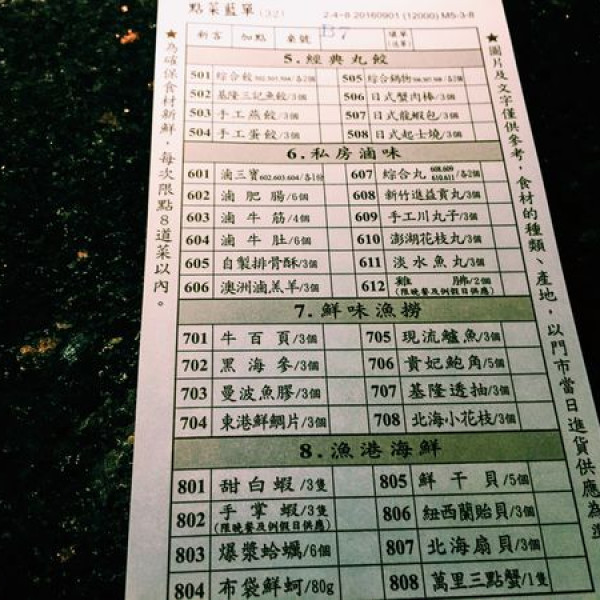 點菜藍單(32) 2-4-8 20160901 (12000) MS-3-8
新客 加點 桌號 B7 填單(送單)
★為確保食材新鮮，每次限點8道菜以內。
★圖片及文字僅供參考，食材的種類、產地，以門市當日進貨供應為準
5.經典丸餃
501 綜合餃 502.503.504/各2個
505 綜合鍋物 506.507.508/各2個
502 基隆三記魚餃/3個
506 日式蟹肉棒/3個
503 手工燕餃/3個
507 日式龍蝦包/3個
504 手工蛋餃/3個
508 日式起士燒/3個
6.私房滷味
601 滷三寶 602.603.604/各1份
607 綜合丸 608.609 610.611/各2個
602 滷肥腸/6個
608 新竹進益貢丸/3個
603 滷牛筋/4個
609 手工川丸子/3個
604 滷牛肚/6個
610 澎湖花枝丸/3個
605 自製排骨酥/3個
611 淡水魚丸/3個
606 澳洲滷羔羊/3個
612 雞胇/2個
(限晚餐及例假日供應)
7.鮮味漁撈
701 牛百頁/3個
705 現流鱸魚/3個
702 黑海參/3個
706 貴妃鮑角/5個
703 曼波魚膠/3個
707 基隆透抽/3個
704 東港鮮鯛片/3個
708 北海小花枝/3個
8.漁港海鮮
801 甜白蝦/3隻
805 鮮干貝/5個
802 手掌蝦/3隻
(限晚餐及例假日供應)
806 紐西蘭貽貝/3個
803 爆漿蛤蠣/6個
807 北海扇貝/3個
804 布袋鮮蚵/80g
808 萬里三點蟹/1隻